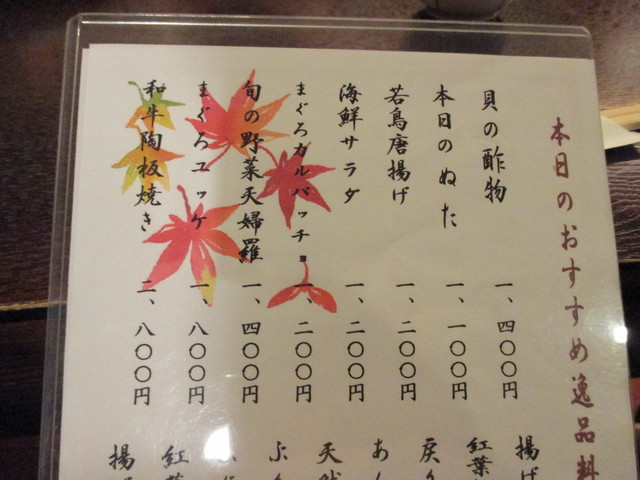 本日のおすすめ逸品料
貝の酢物 一、四〇〇円
本日のぬた 一、一〇〇円
若鳥唐揚げ 一、二〇〇円
海鮮サラダ 一、二〇〇円
まぐろカルパッチョ 一、二〇〇円
旬の野菜天婦羅 一、四〇〇円
まぐろユッケ 一、八〇〇円
和牛陶板焼き 二、八〇〇円
揚げ
紅葉
戻り
あん
天然
ふぐ
紅葉
揚